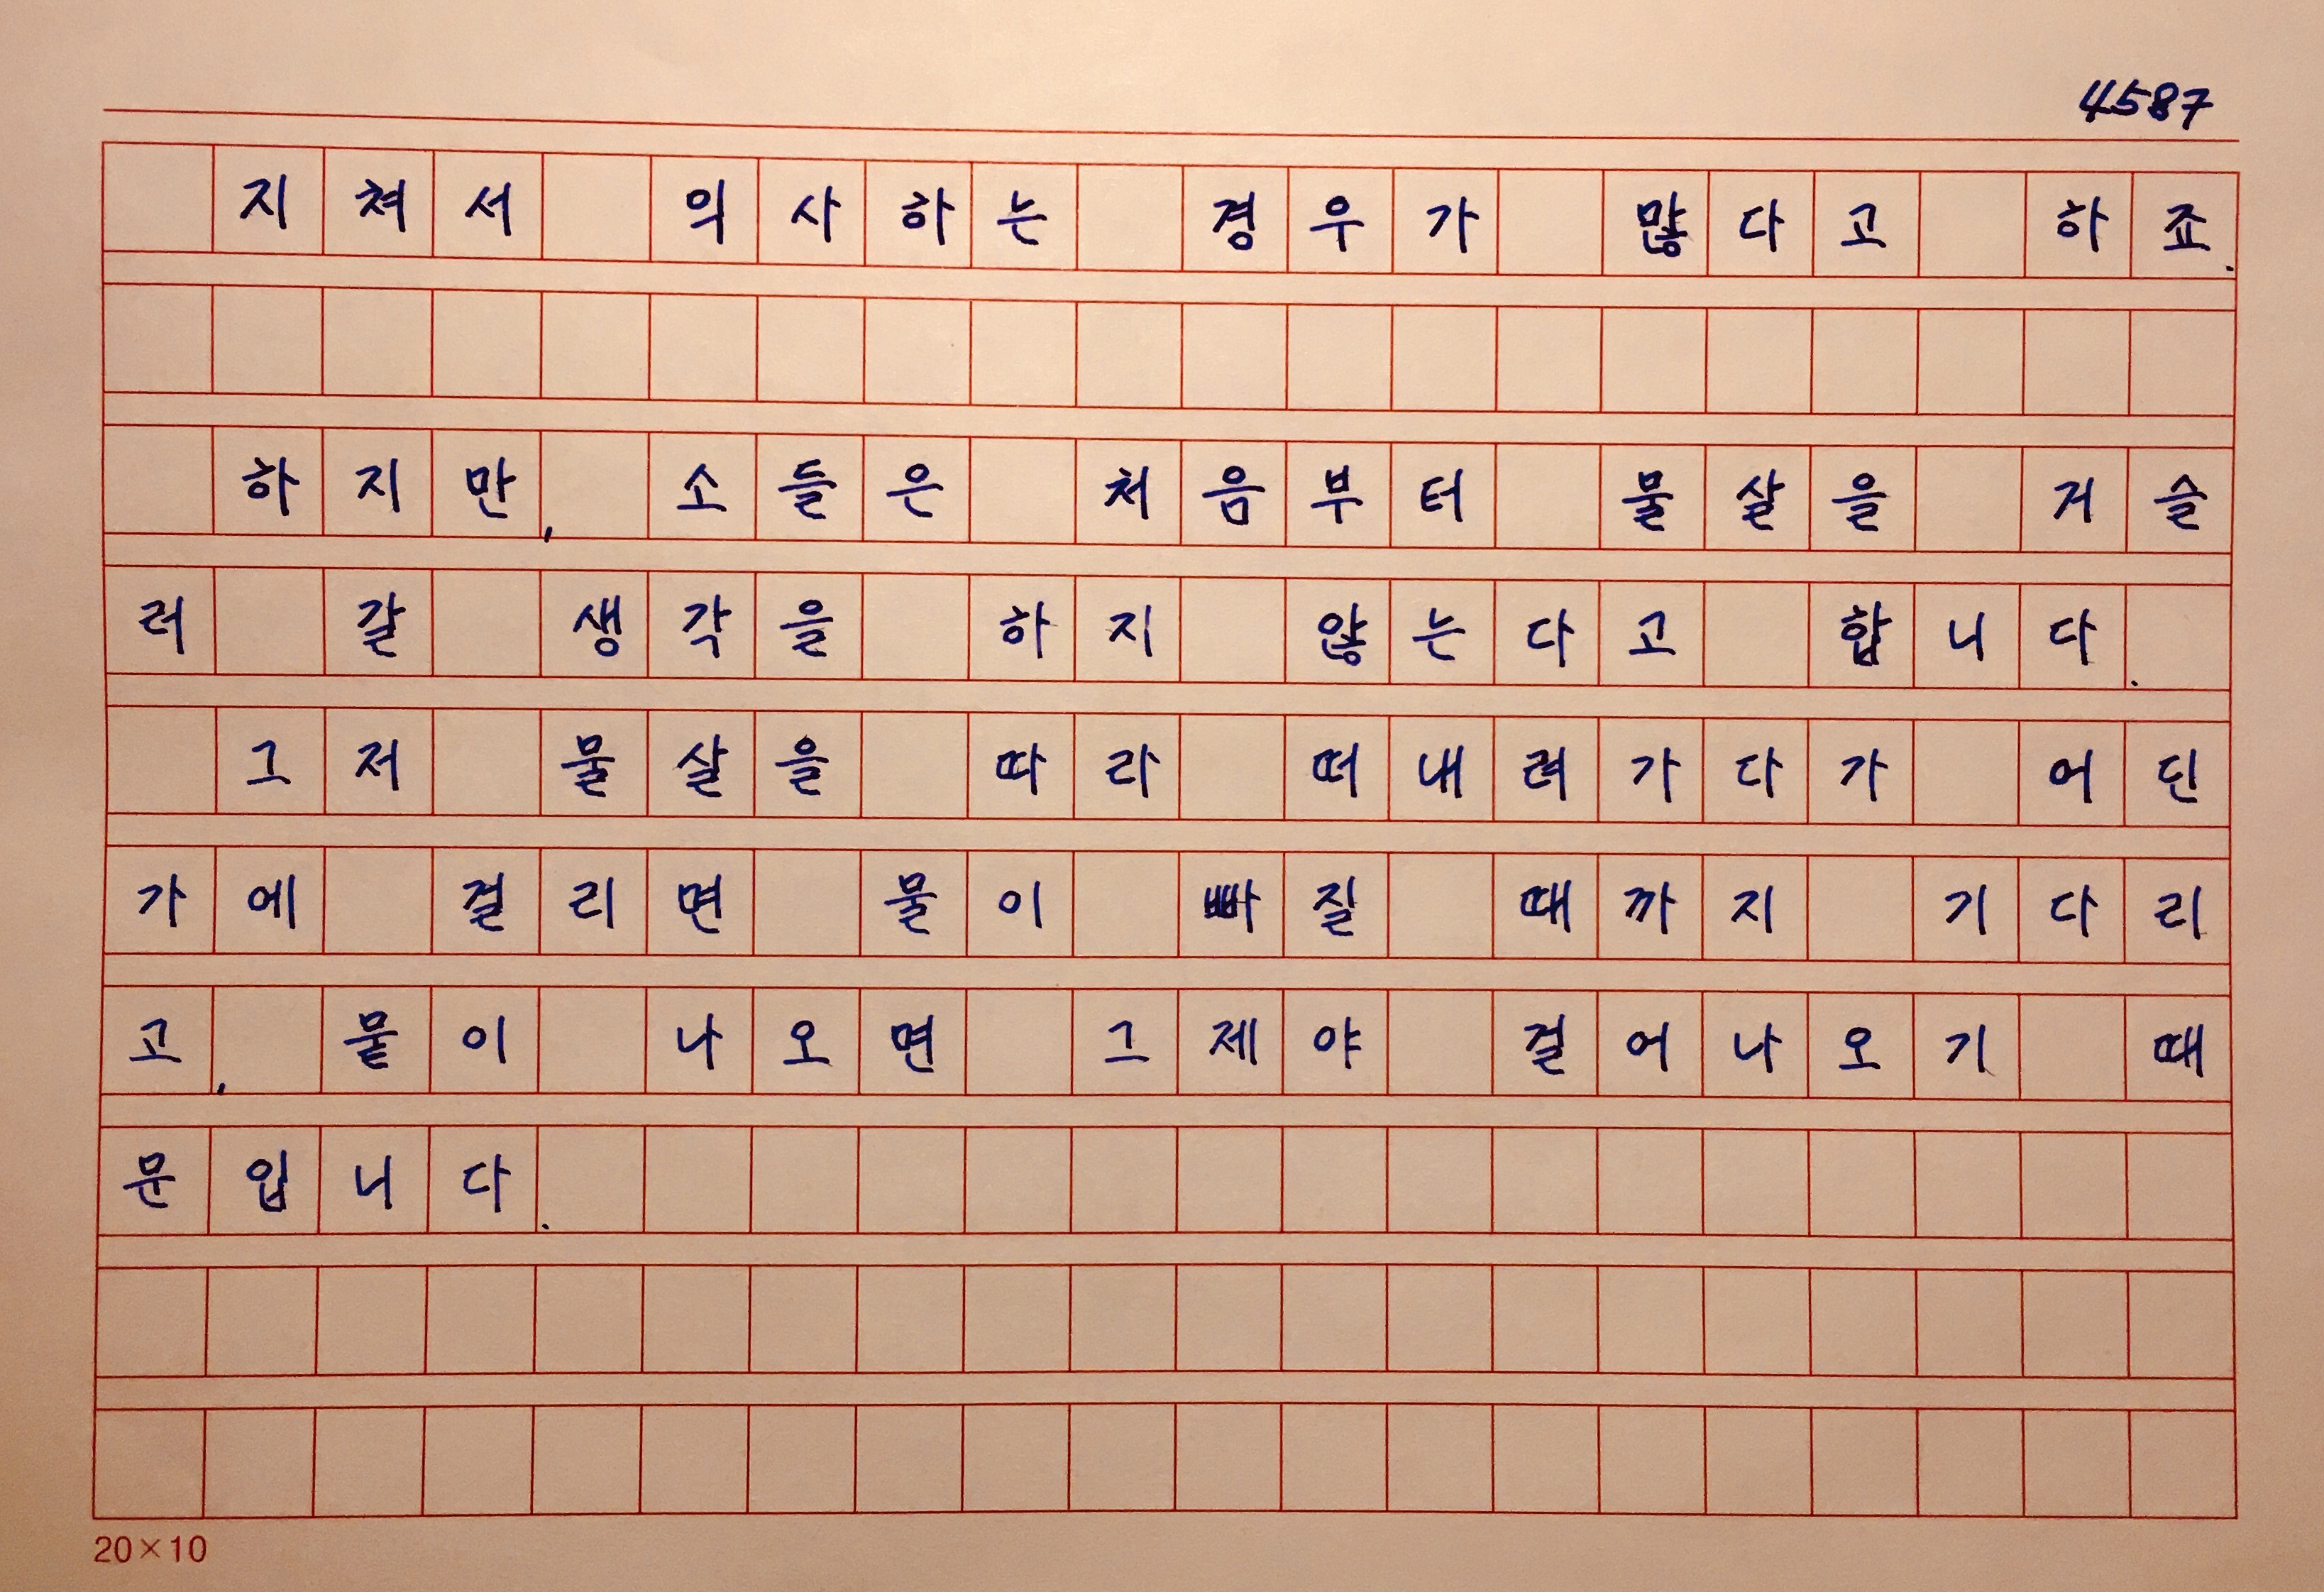 4587
지쳐서 익사하는 경우가 많다고 하죠.
하지만, 소들은 처음부터 물살을 거슬
러 갈 생각을 하지 않는다고 합니다.
그저 물살을 따라 떠내려가다가 어딘
가에 걸리면 물이 빠질 때까지 기다리
고, 뭍이 나오면 그제야 걸어나오기 때
문입니다.
20×10